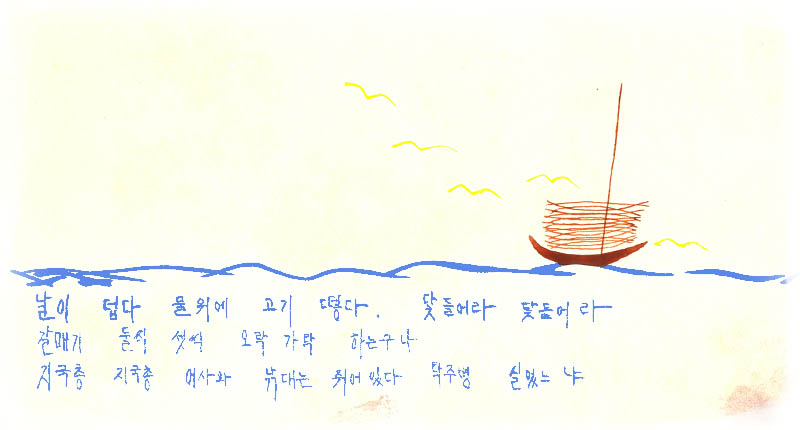 날이 덥다 물위에 고기 떳다. 닻들어라 닻들어라
갈매기 둘식 셋식 오락 가락 하는구나
지국총 지국총 어사와 낚대는 쥐어있다 탁주병 실었느냐